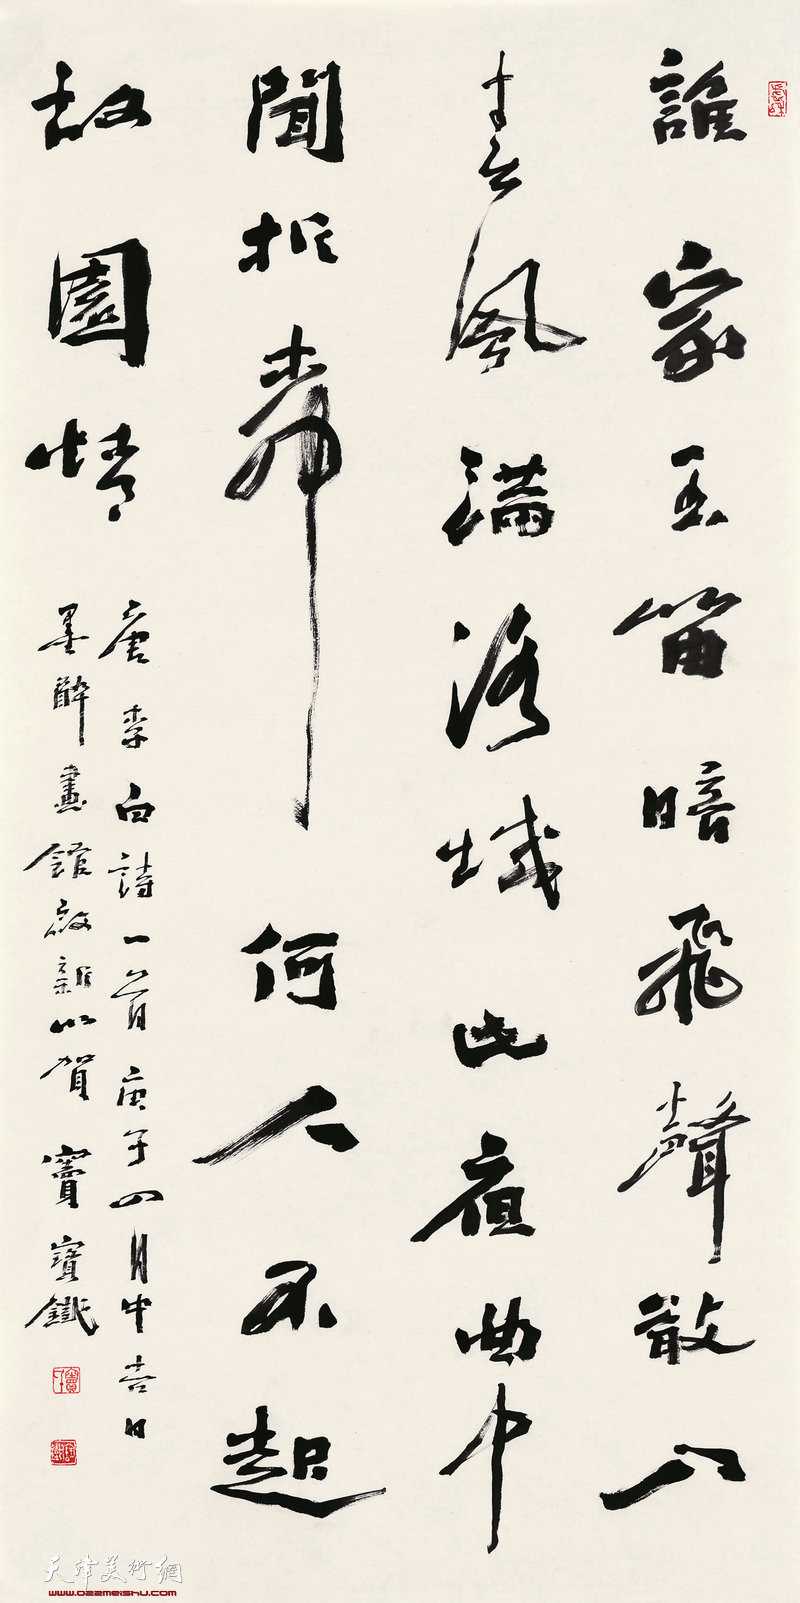 誰家玉笛暗飛聲散入
春風滿洛城此夜曲中
聞折柳何人不起
故園情
唐李白詩一首庚子四月中吉日
墨醉畫館啟新以賀竇寶鐵
天津美術網
www.022meishu.com